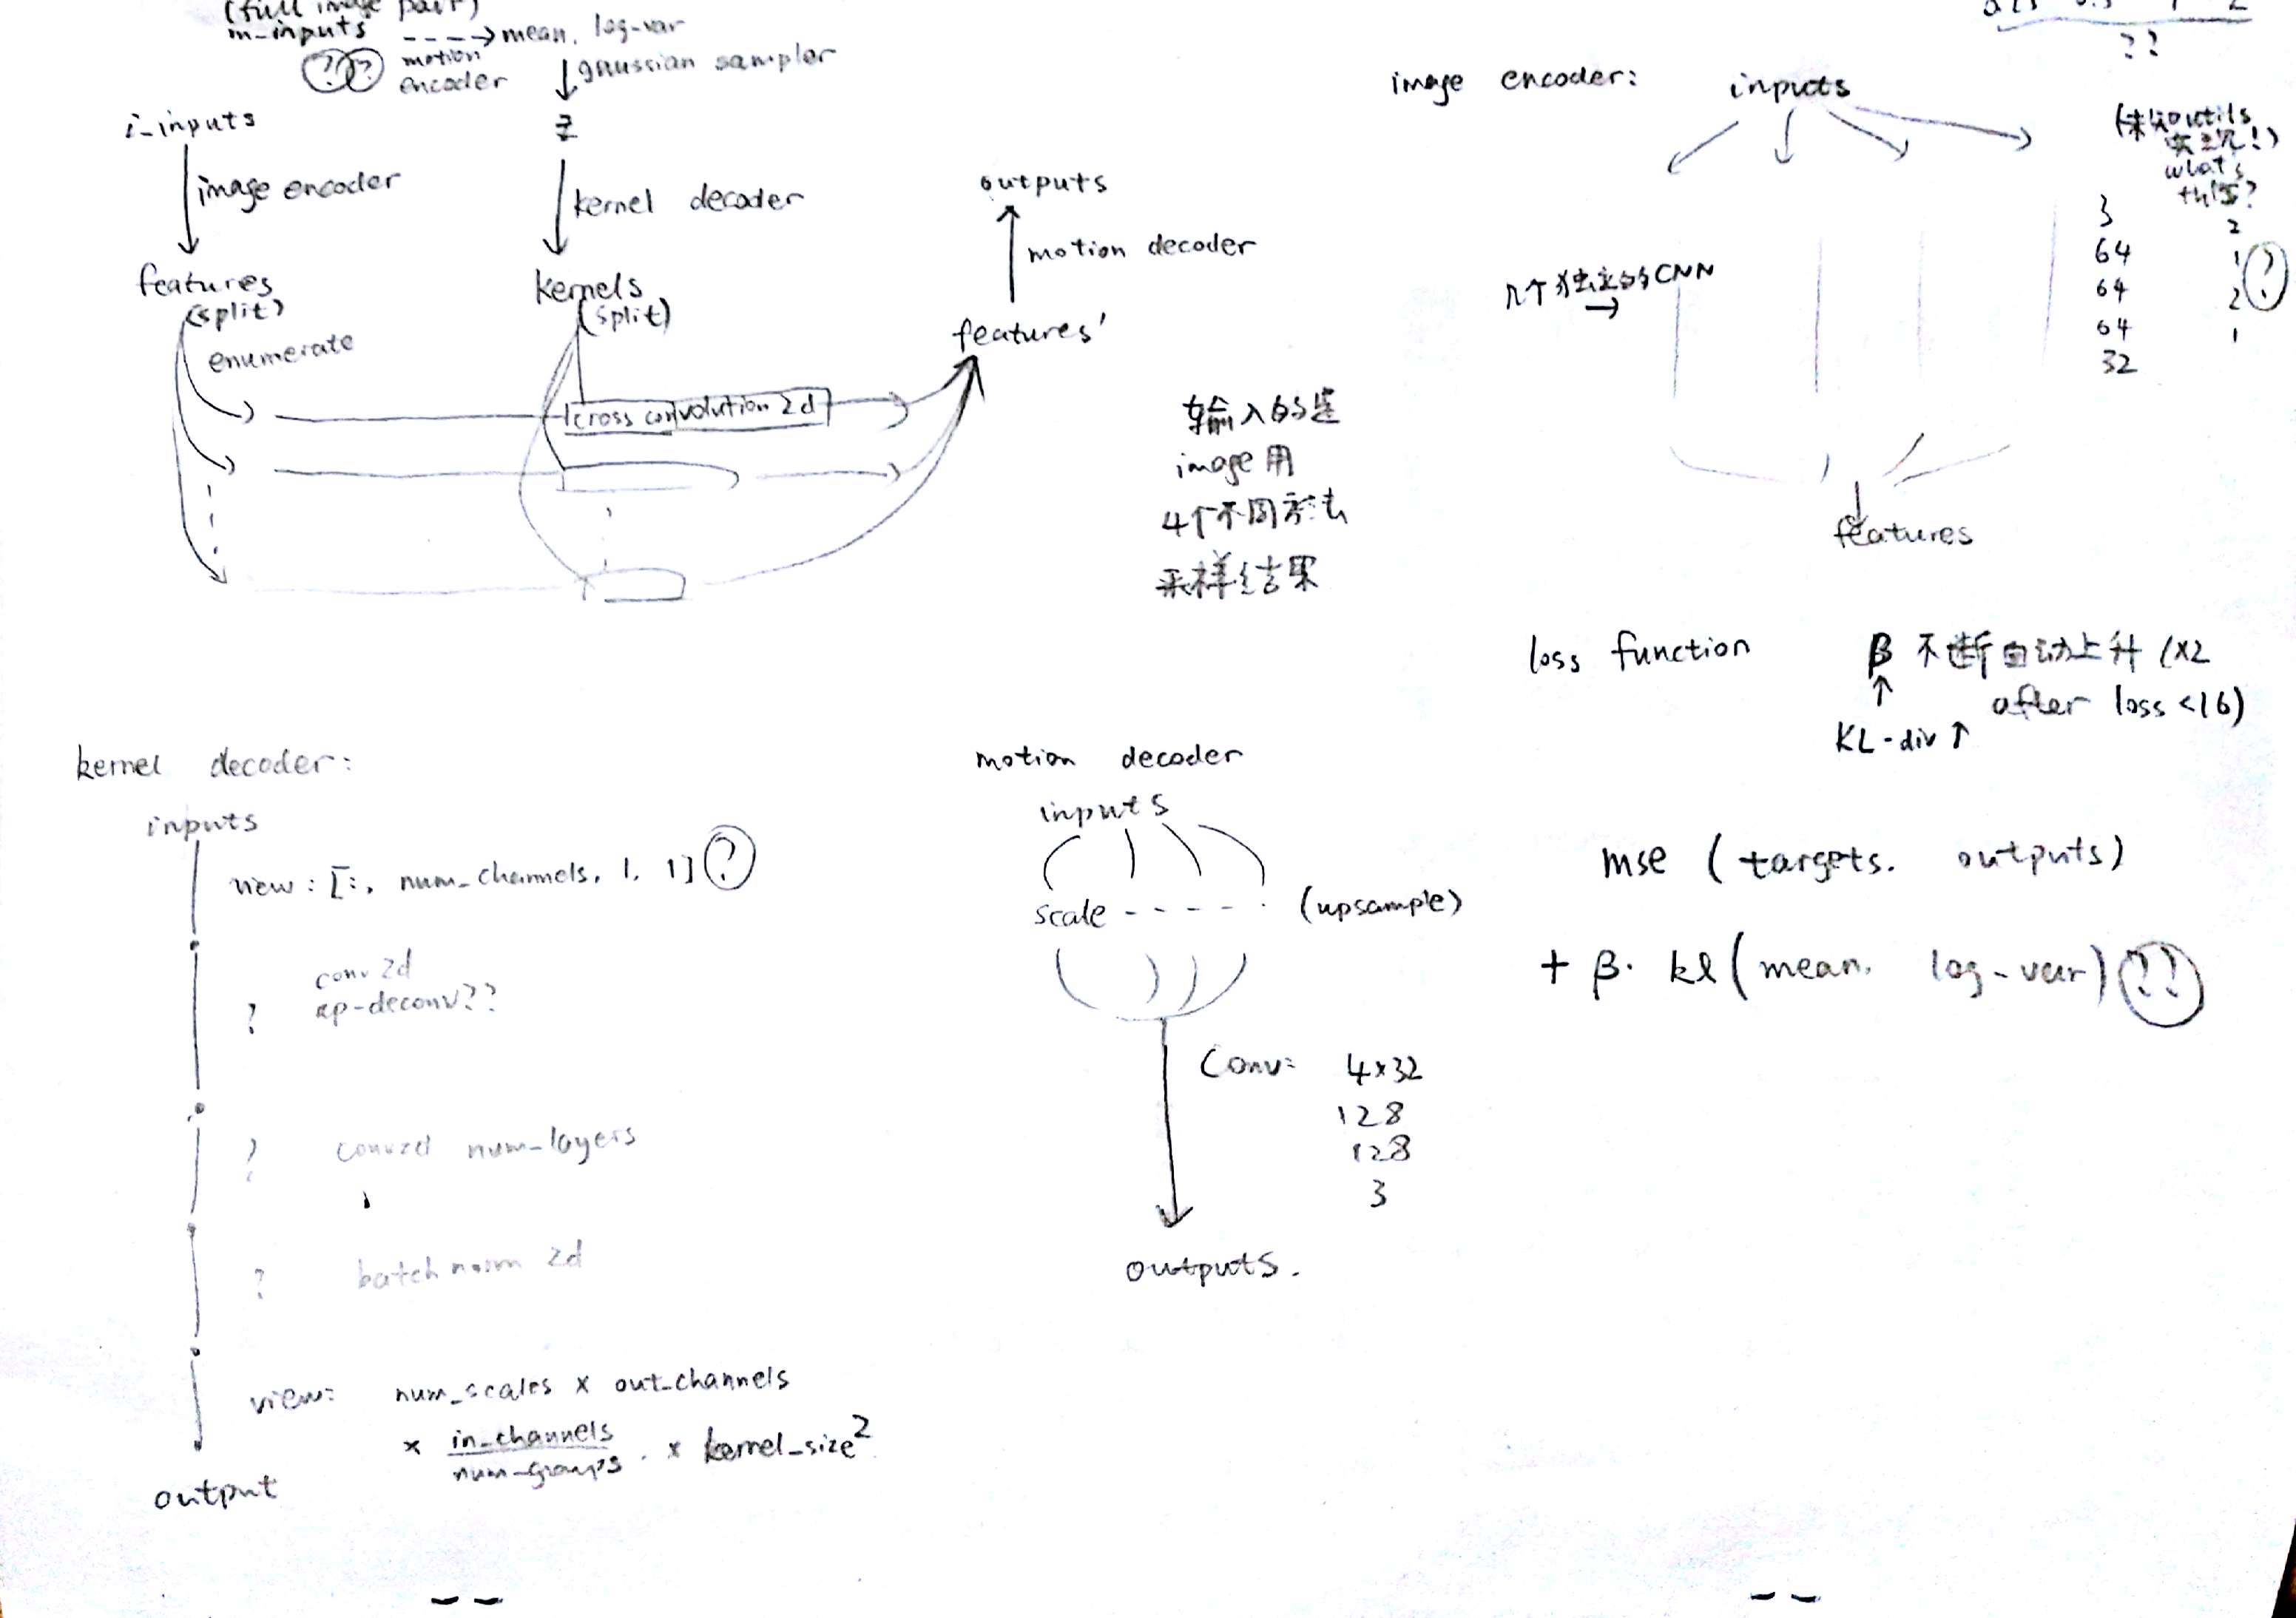 (full image pair)
m-inputs ----> mean, log-var
?? motion encoder
↓ gaussian sampler
z
i-inputs
image encoder
kernel decoder
features
(split)
enumerate
kernels
(split)
cross convolution 2d
outputs
motion decoder
features'
输入的是
image用
4个不同方法
采样结果
??
image encoder:
inputs
what's
this?
几个独立的CNN
→
3
64
64
64
32
2
1
2
1
?
features
loss function
β 不断自动上升 (×2
after loss <16)
↑
KL-div ↑
mse (targets. outputs)
+ β. kl(mean, log-var) ??
kernel decoder:
inputs
view: [:, num_channels, 1, 1] ?
conv 2d
? ap-deconv??
? conv2d num_layers
? batch norm 2d
view: num_scales × out_channels
× in_channels
num_groups × kernel_size²
output
motion decoder
inputs
scale ---- (upsample)
Conv: 4×32
128
128
3
outputs.